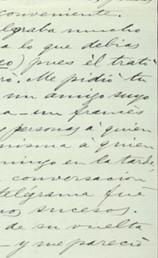 conveniente.
legraba mucho
a lo que debias
co) pues el trató
ró. Me pidió tu
un amigo suyo
a - un francés
personas a quien
misma a quien
mingo en la tarde
conversación
telégrama fué
sucesos.
de su vuelta
- y me pareció